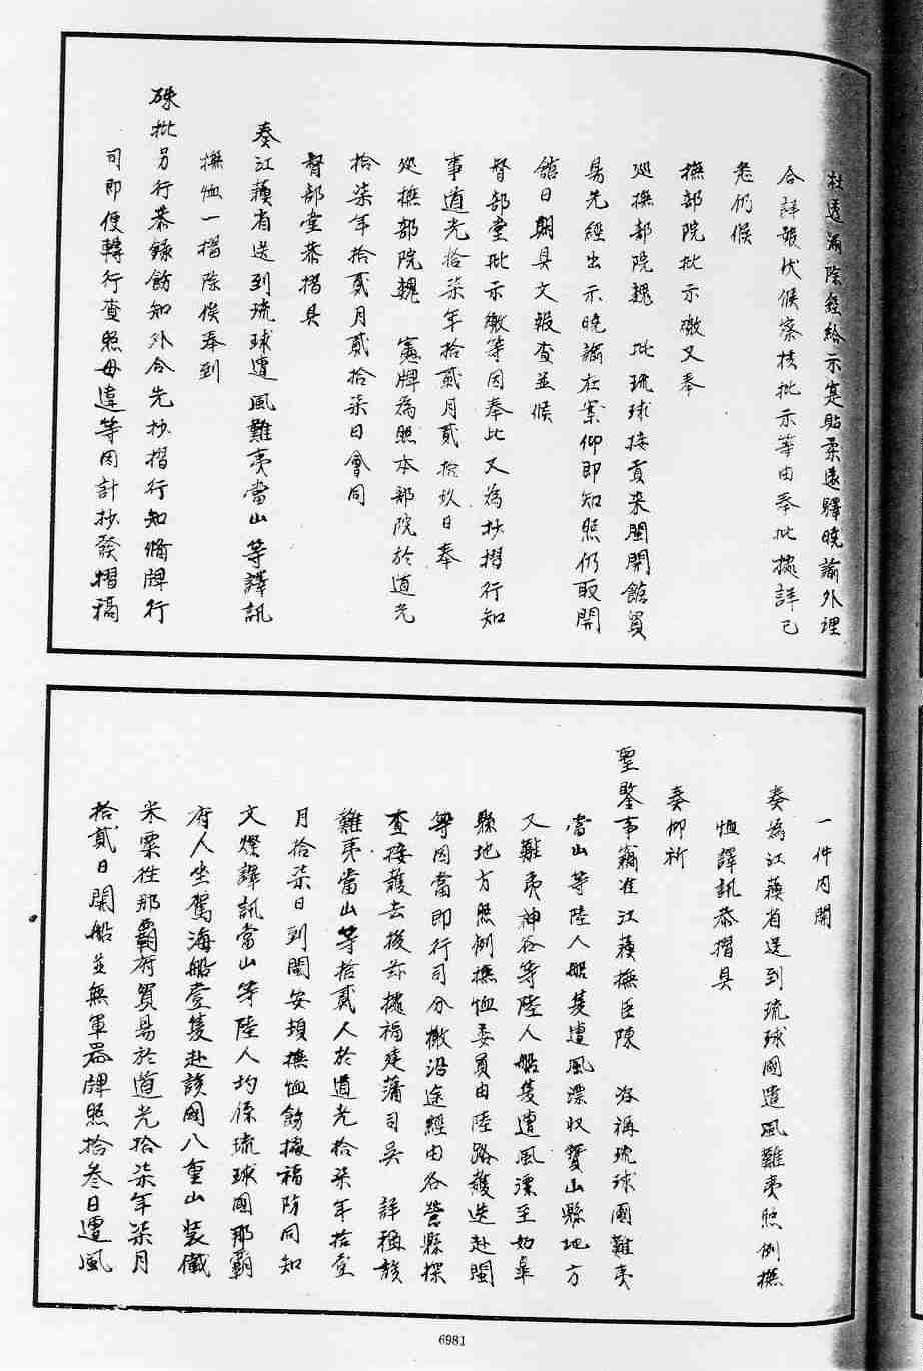 杜透漏除經給示寔貼柔遠驛曉諭外理
合詳報伏候察核批示等由奉批據詳已
悉仍候
撫部院批示繳又奉
巡撫部院魏　批琉球接貢來閩開館貿
易先經出示曉諭在案仰即知照仍取開
館日期具文報查並候
督部堂批示繳等因奉此又為抄摺行知
事道光拾柒年拾貳月貳拾玖日奉
巡撫部院魏　憲牌為照本部院於道光
拾柒年拾貳月貳拾柒日會同
督部堂恭摺具
奏江蘇省送到琉球遭風難夷當山等譯訊
撫恤一摺除俟奉到
硃批另行恭錄飭知外合先抄摺行知備牌行
司即便轉行查照毋違等因計抄發摺稿
一件內開
奏為江蘇省送到琉球國遭風難夷照例撫
恤譯訊恭摺具
奏仰祈
聖鑒事竊准江蘇撫臣陳　咨稱琉球國難夷
當山等陸人船隻遭風漂收贊山縣地方
又難夷神谷等陸人船隻遭風漂至如皐
縣地方照例撫恤委員由陸路護送赴閩
等因當即行司分檄沿途經由各營縣探
查接護去後茲據福建藩司吳　詳稱該
難夷當山等拾貳人於道光拾柒年拾壹
月拾柒日到閩安頓撫恤飭據福防同知
文燦譯訊當山等陸人均係琉球國那霸
府人坐駕海船壹隻赴該國八重山裝儎
米粟往那霸府貿易於道光拾柒年柒月
拾貳日開船並無軍器牌照拾叁日遭風
6981